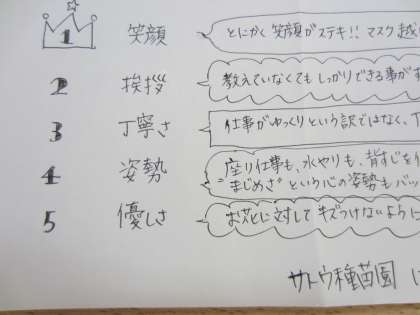 1 笑顔 とにかく笑顔がステキ!! マスク越
2 挨拶 教えていなくてもしっかりできる事が
3 丁寧さ 仕事がゆっくりという訳ではなく、丁
4 姿勢 座り仕事も、水やりも、背すじを
"まじめさ"という心の姿勢もバッ
5 優しさ お花に対してキズつけないように
サトウ種苗園